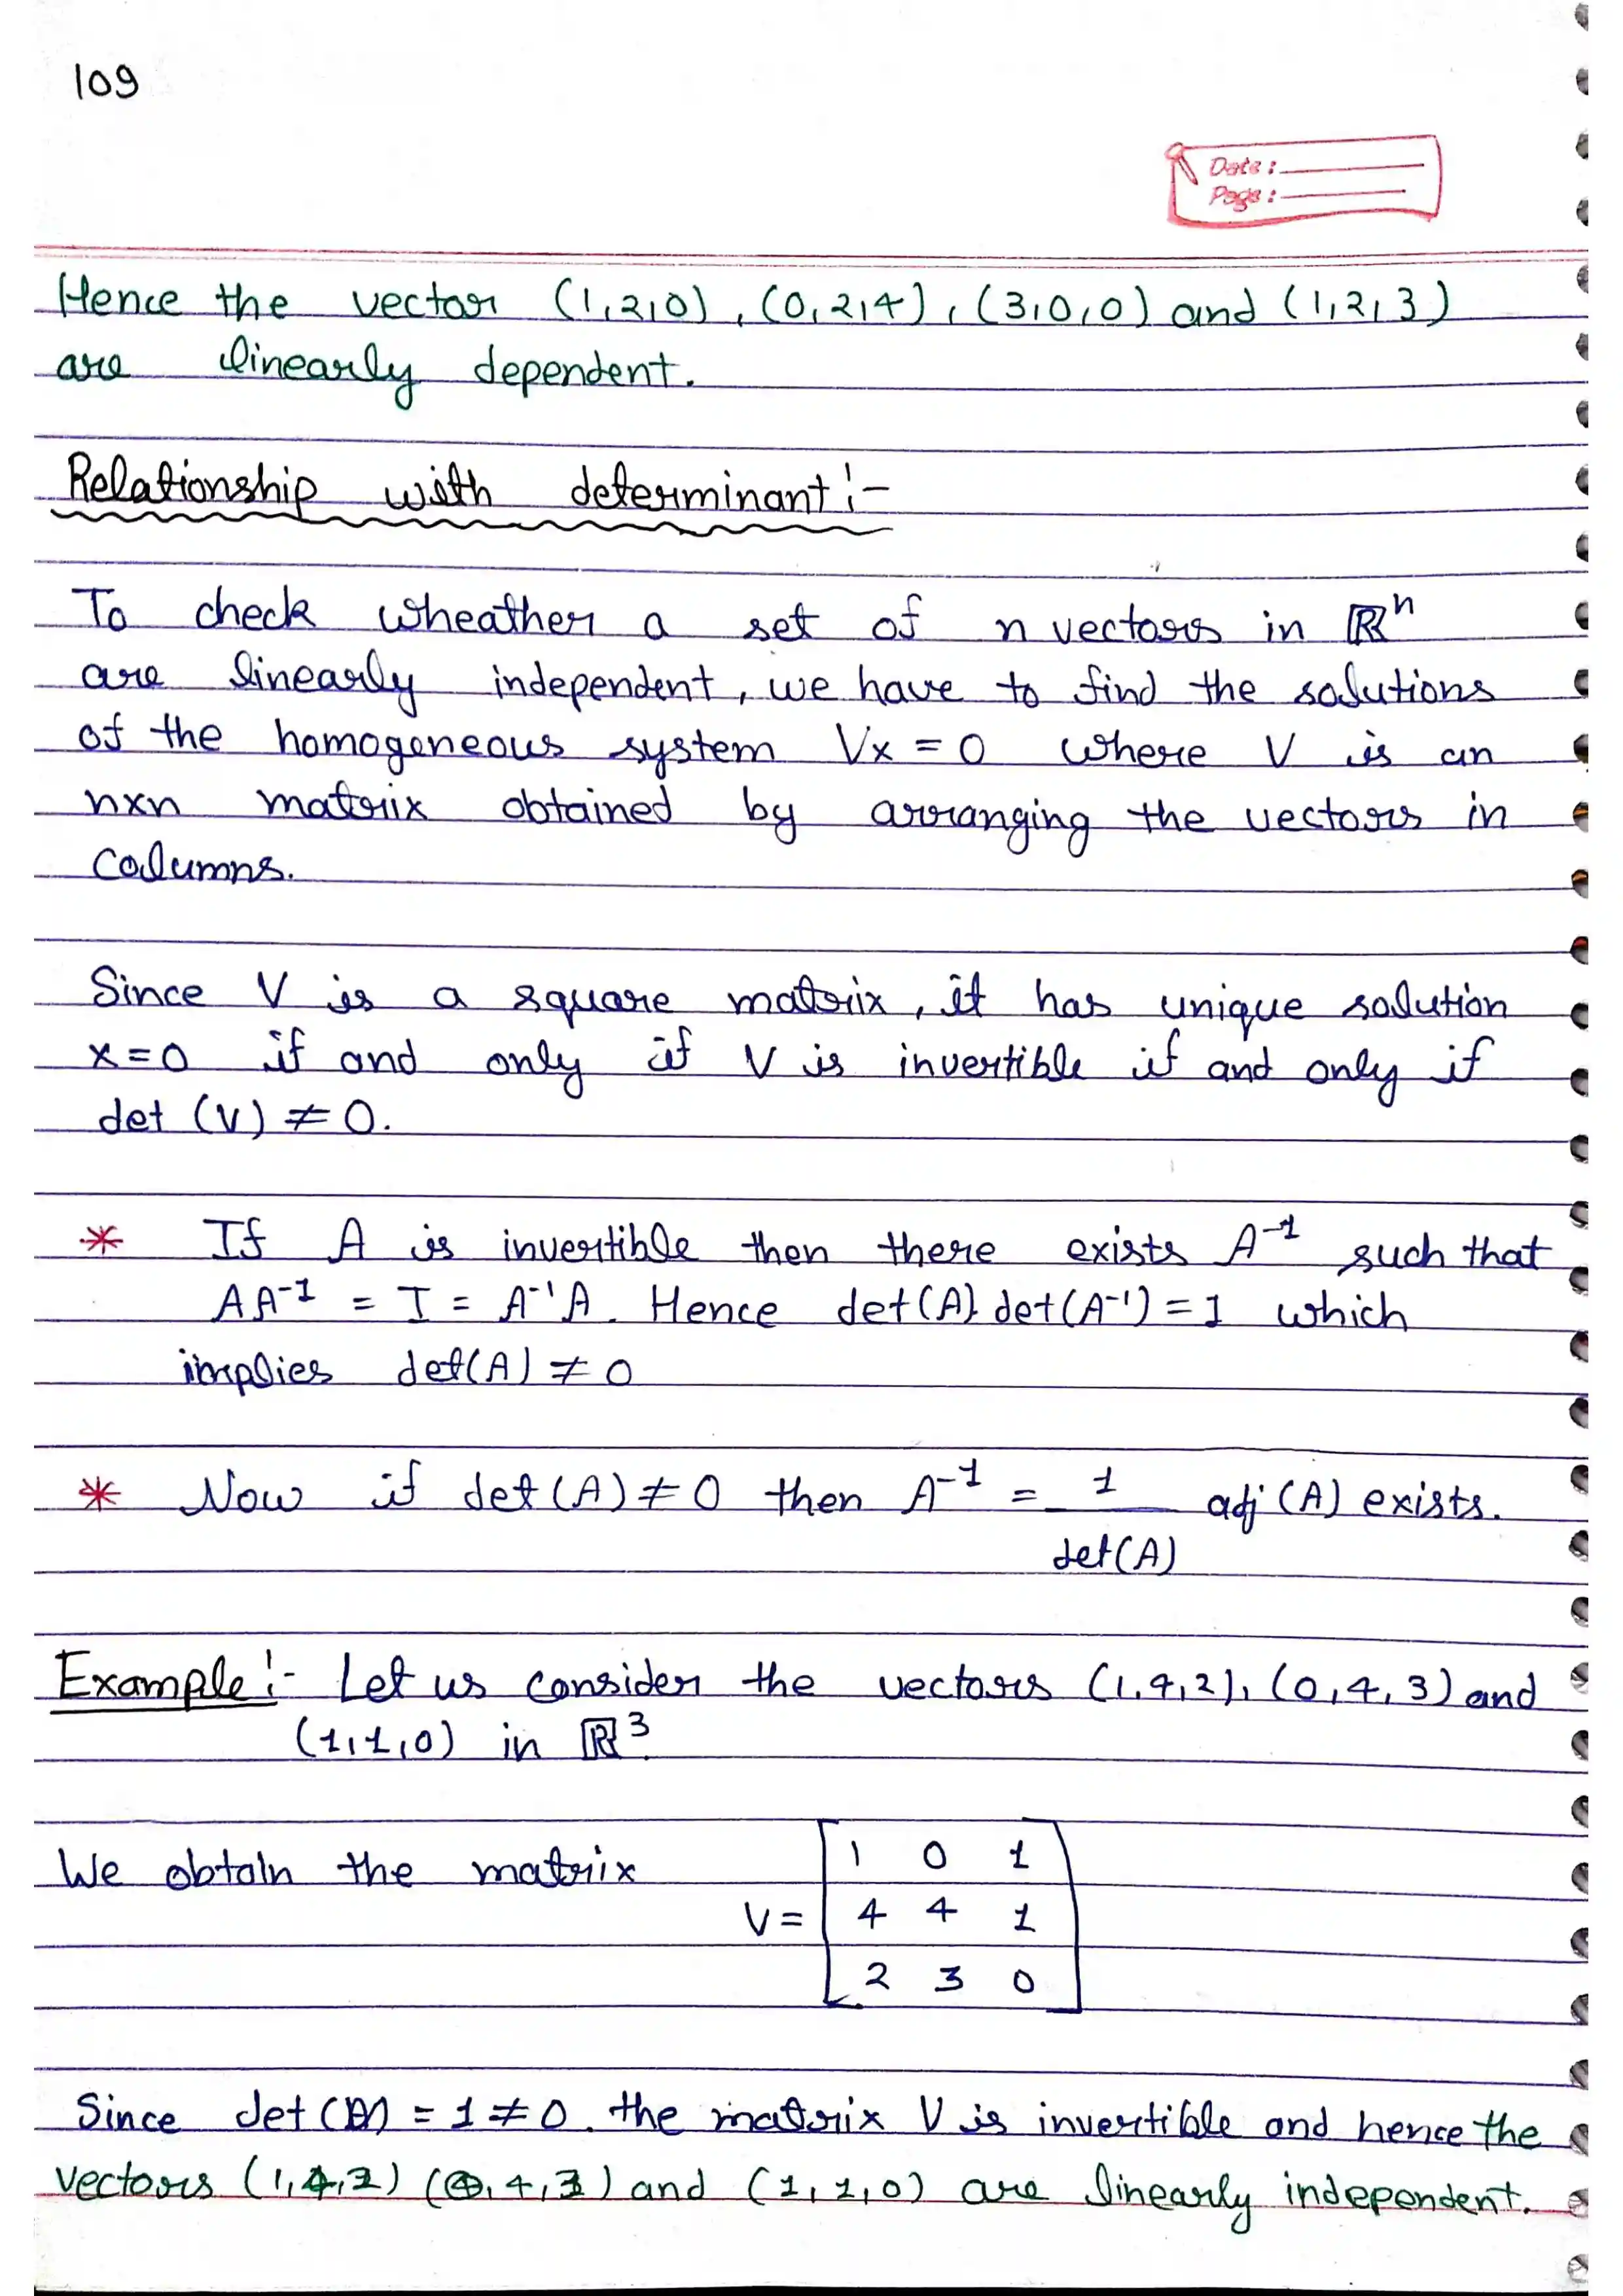 109
Date:
Page:
Hence the vector (1,2,0), (0,2,4), (3,0,0) and (1,2,3)
are linearly dependent.
Relationship with determinant:-
To check wheather a set of n vectors in ℝⁿ
are linearly independent, we have to find the solutions
of the homogeneous system Vx = 0 where V is an
nxn matrix obtained by arranging the vectors in
columns.
Since V is a square matrix, it has unique solution
x=0 if and only if V is invertible if and only if
det (V) ≠ 0.
* If A is invertible then there exists A⁻¹ such that
AA⁻¹ = I = A⁻¹A. Hence det(A).det(A⁻¹) = 1 which
implies det(A) ≠ 0
* Now if det(A) ≠ 0 then A⁻¹ = 1 adj (A) exists.
det(A)
Example:- Let us consider the vectors (1,4,2), (0,4,3) and
(1,1,0) in ℝ³.
We obtain the matrix
1 0 1
V = 4 4 1
2 3 0
Since det(V) = 1 ≠ 0. the matrix V is invertible and hence the
vectors (1,4,2) (0,4,3) and (1,1,0) are linearly independent.